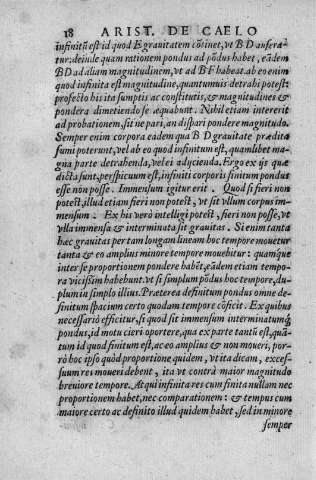 18 ARIST. DE CAELO
infinitũ est id quod E grauitatem cõtinet, vt B D aufera
tur: deinde quam rationem pondus ad põdus habet, eãdem
B D ad aliam magnitudinem, vt ad B F habeat. ab eo enim
quod infinita est magnitudine, quantumuis detrahi potest:
profecto his ita sumptis ac constitutis, & magnitudines &
pondera dimetiendo se æquabunt. Nihil etiam intererit
ad probationem, sit ne pari, an dispari pondere magnitudo.
Semper enim corpora eadem qua B D grauitate prædita
sumi poterunt, vel ab eo quod infinitum est, quamlibet ma-
gna parte detrahenda, vel ei adijcienda. Ergo ex ijs quæ
dicta sunt, perspicuum est, infiniti corporis finitum pondus
esse non posse. Immensum igitur erit. Quod si fieri non
potest, illud etiam fieri non potest, vt sit vllum corpus im-
mensum. Ex his verò intelligi potest, fieri non posse, vt
vlla immensa & interminata sit grauitas. Si enim tanta
hæc grauitas per tam longam lineam hoc tempore mouetur
tanta & eo amplius minore tempore mouebitur: quamque
inter se proportionem pondere habet, eãdem etiam tempo-
ra vicißim habebunt. vt si simplum põdus hoc tempore, du-
plum in simplo illius. Præterea definitum pondus omne de-
finitum spacium certo quodam tempore cõficit. Ex quibus
necessariò efficitur, si quod sit immensum interminatumq́;
pondus, id motu cieri oportere, qua ex parte tantũ est, quã-
tum id quod finitum est, ac eo amplius & non moueri, por-
rò hoc ipso quòd proportione quidem, vt ita dicam, exces-
suum res moueri debent, ita vt contrà maior magnitudo
breuiore tempore. Atqui infinita res cum finita nullam nec
proportionem habet, nec comparationem: & tempus cum
maiore certo ac definito illud quidem habet, sed in minore
semper